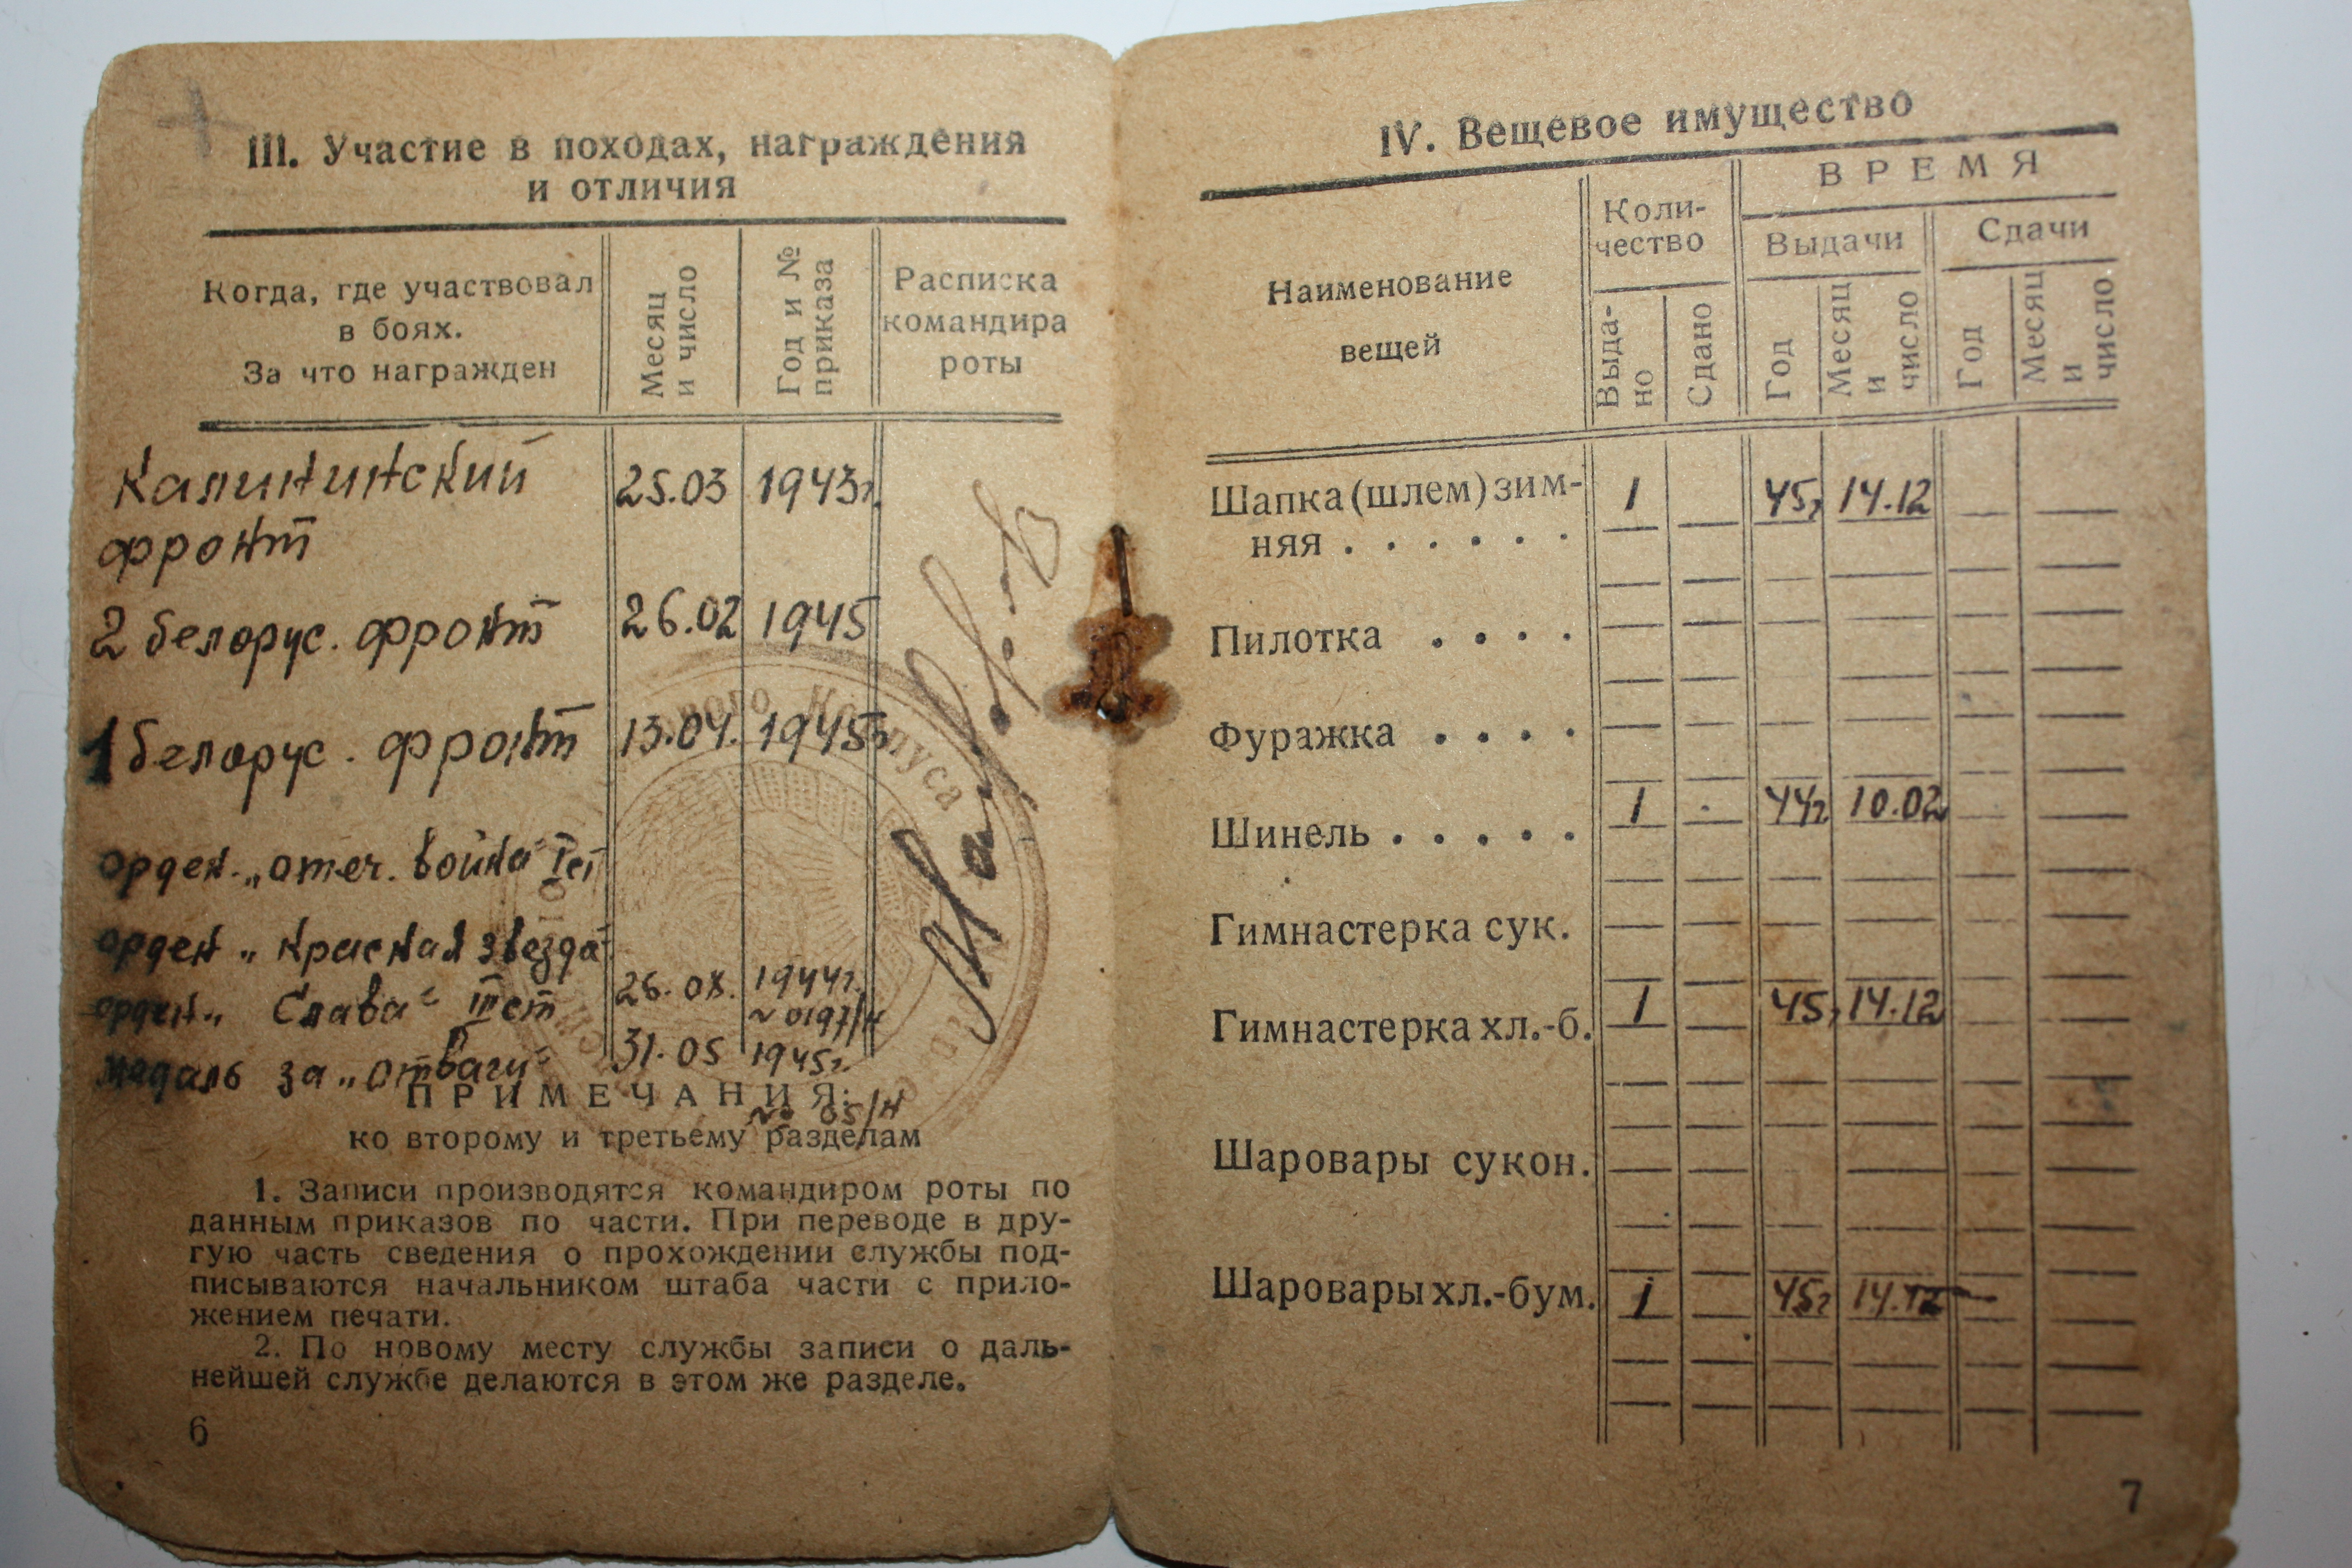 III. Участие в походах, награждения
и отличия
Когда, где участвовал
в боях.
За что награжден
Месяц
и число
Год и №
приказа
Расписка
командира
роты
Калининский 25.03 1943г.
фронт
2 белорус. фронт 26.02 1945
1 белорус. фронт 13.04. 1945г.
орден „отеч. война"
орден „красная звезда
орден „Слава" III ст 26.08. 1944г.
№ 0197/н
медаль за „отвагу" 31.05 1945г.
№ 05/н
ПРИМЕЧАНИЯ:
ко второму и третьему разделам
1. Записи производятся командиром роты по
данным приказов по части. При переводе в дру-
гую часть сведения о прохождении службы под-
писываются начальником штаба части с прило-
жением печати.
2. По новому месту службы записи о даль-
нейшей службе делаются в этом же разделе.
6
Корпуса
IV. Вещевое имущество
Наименование
вещей
Коли-
чество
ВРЕМЯ
Выдачи
Сдачи
Выда-
но
Сдано
Год
Месяц
и
число
Год
Месяц
и
число
Шапка (шлем) зим- 1 45г 14.12
няя . . . . . .
Пилотка . . . .
Фуражка . . . .
Шинель . . . . . 1 44г 10.02
Гимнастерка сук.
Гимнастерка хл.-б. 1 45г 14.12
Шаровары сукон.
Шаровары хл.-бум. 1 45г 14.12
7